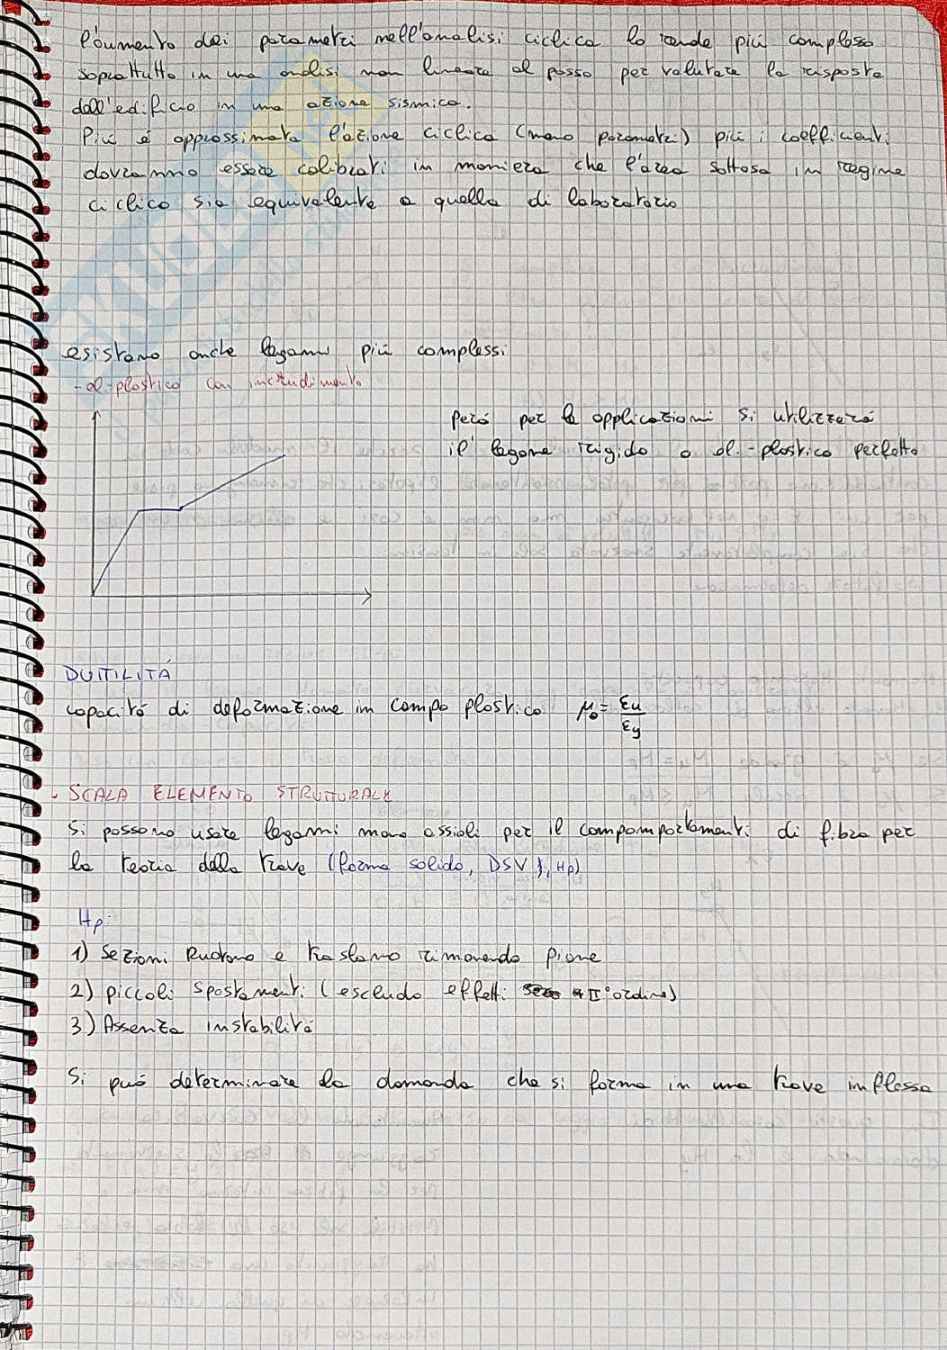 l'aumento dei parametri nell'analisi ciclica lo rende più complesso
soprattutto in una analisi non lineare al passo per valutare la risposta
dall'edificio in una azione sismica.
Più è approssimata l'azione ciclica (meno parametri) più i coefficienti
dovranno essere calibrati in maniera che l'area sottesa in regime
ciclico sia equivalente a quella di laboratorio
esistono anche legami più complessi
- el-plastico con incrudimento
però per le applicazioni si utilizzerà
il legame rigido o el.-plastico perfetto
DUTTILITÀ
capacità di deformazione in campo plastico μ₀ = εu/εy
. SCALA ELEMENTO STRUTTURALE
Si possono usare legami mono assiali per il compomportamenti di fibra per
la teoria della trave (forma solido, DSV, Hp)
Hp:
1) Sezioni Ruotano e traslano rimanendo piane
2) piccoli spostamenti (escludo effetti II° ordine)
3) Assenza instabilità
Si può determinare la domanda che si forma in una trave inflessa